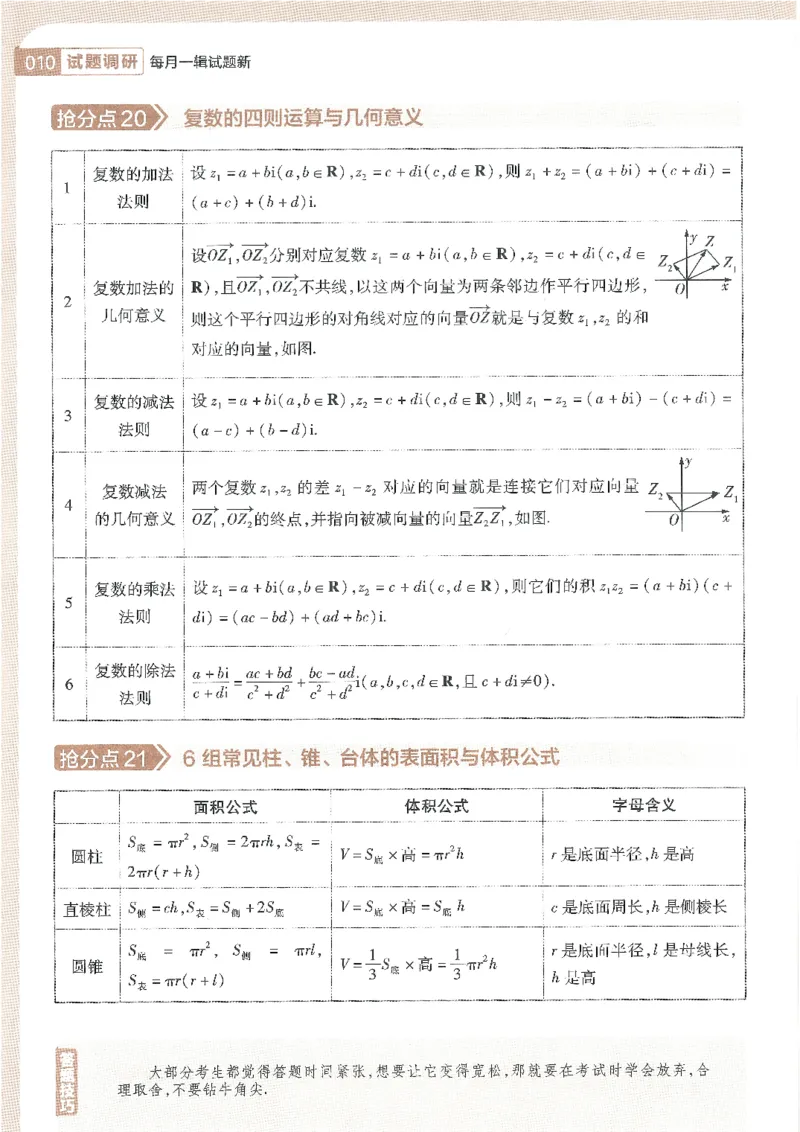 010 试题调研 每月一辑试题新
抢分点20 复数的四则运算与几何意义
1 复数的加法法则 设z₁=a+bi(a,b∈R),z₂=c+di(c,d∈R),则z₁+z₂=(a+bi)+(c+di)=
(a+c)+(b+d)i.
2 复数加法的几何意义 设\overrightarrow{OZ₁},\overrightarrow{OZ₂}分别对应复数z₁=a+bi(a,b∈R),z₂=c+di(c,d∈
R),且\overrightarrow{OZ₁},\overrightarrow{OZ₂}不共线,以这两个向量为两条邻边作平行四边形,
则这个平行四边形的对角线对应的向量\overrightarrow{OZ}就是与复数z₁,z₂的和
对应的向量,如图.
y Z Z₂ Z₁ O x
3 复数的减法法则 设z₁=a+bi(a,b∈R),z₂=c+di(c,d∈R),则z₁-z₂=(a+bi)-(c+di)=
(a-c)+(b-d)i.
4 复数减法的几何意义 两个复数z₁,z₂的差z₁-z₂对应的向量就是连接它们对应向量
\overrightarrow{OZ₁},\overrightarrow{OZ₂}的终点,并指向被减向量的向量\overrightarrow{Z₂Z₁},如图.
y Z₂ Z₁ O x
5 复数的乘法法则 设z₁=a+bi(a,b∈R),z₂=c+di(c,d∈R),则它们的积z₁z₂=(a+bi)(c+
di)=(ac-bd)+(ad+bc)i.
6 复数的除法法则 \frac{a+bi}{c+di}=\frac{ac+bd}{c²+d²}+\frac{bc-ad}{c²+d²}i(a,b,c,d∈R,且c+di≠0).
抢分点21 6组常见柱、锥、台体的表面积与体积公式
面积公式 体积公式 字母含义
圆柱 S底=πr²,S侧=2πrh,S表=
2πr(r+h) V=S底×高=πr²h r是底面半径,h是高
直棱柱 S侧=ch,S表=S侧+2S底 V=S底×高=S底h c是底面周长,h是侧棱长
圆锥 S底=πr²,S侧=πrl,
S表=πr(r+l) V=\frac{1}{3}S底×高=\frac{1}{3}πr²h r是底面半径,l是母线长,
h是高
答题技巧
大部分考生都觉得答题时间紧张,想要让它变得宽松,那就要在考试时学会放弃,合
理取舍,不要钻牛角尖.